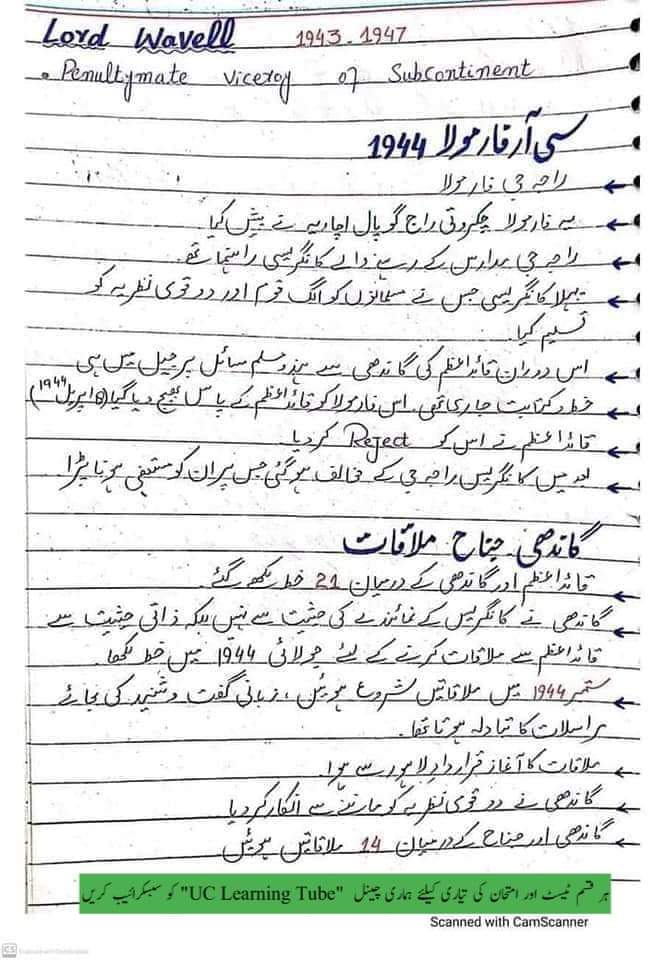 Lord Wavell 1943-1947
• Penultymate viceroy of Subcontinent
سی آر فارمولا 1944
← راجہ جی فارمولا
← یہ فارمولا چکروتی راج گوپال اچاریہ نے پیش کیا
← راجہ جی مدارس کے رہنے والے کانگریسی راہنما تھے۔
← پہلا کانگریسی جس نے مسلمانوں کو الگ قوم اور دو قومی نظریہ کو
تسلیم کیا۔
← اس دوران قائداعظم کی گاندھی سے ہندو مسلم مسائل پر جیل میں ہی
← خط و کتابت جاری تھی۔ اس فارمولا کو قائداعظم کے پاس بھیج دیا گیا (8 اپریل 1944)
← قائداعظم نے اس کو Reject کر دیا
← بعد میں کانگریس راجہ جی کے مخالف ہوگئی جس پر ان کو مستعفی ہونا پڑا
گاندھی جناح ملاقات
← قائداعظم اور گاندھی کے درمیان 21 خط لکھے گئے۔
← گاندھی نے کانگریس کے نمائندے کی حثیت سے نہیں بلکہ ذاتی حثیت سے
قائداعظم سے ملاقات کرنے کے لئے جولائی 1944 میں خط لکھا۔
← ستمبر 1944 میں ملاقاتیں شروع ہوئیں، زبانی گفت و شنید کی بجائے
مراسلات کا تبادلہ ہوتا تھا۔
← ملاقات کا آغاز قرارداد لاہور سے ہوا۔
← گاندھی نے دو قومی نظریہ کو ماننے سے انکار کر دیا
← گاندھی اور جناح کے درمیان 14 ملاقاتیں ہوئیں
ہر قسم ٹیسٹ اور امتحان کی تیاری کیلئے ہماری چینل "UC Learning Tube" کو سبسکرائیب کریں
Scanned with CamScanner
CS Scanned with CamScanner